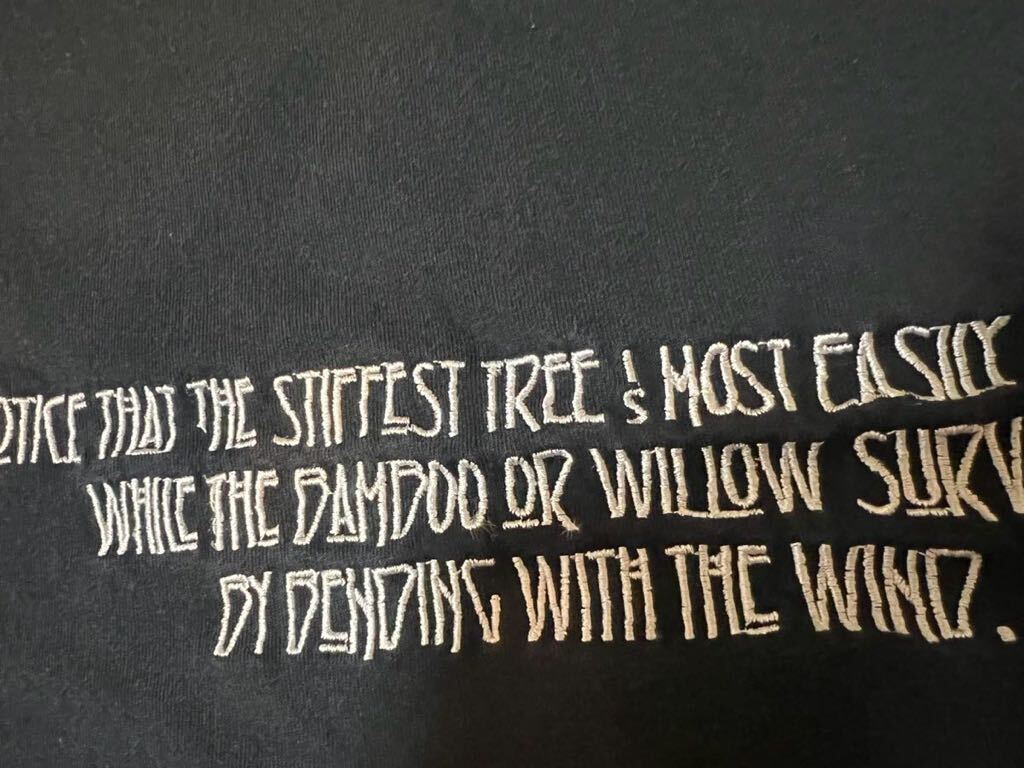 OTICE THAT THE STIFFEST TREE IS MOST EASILY
WHILE THE BAMBOO OR WILLOW SURV
BY BENDING WITH THE WIND.